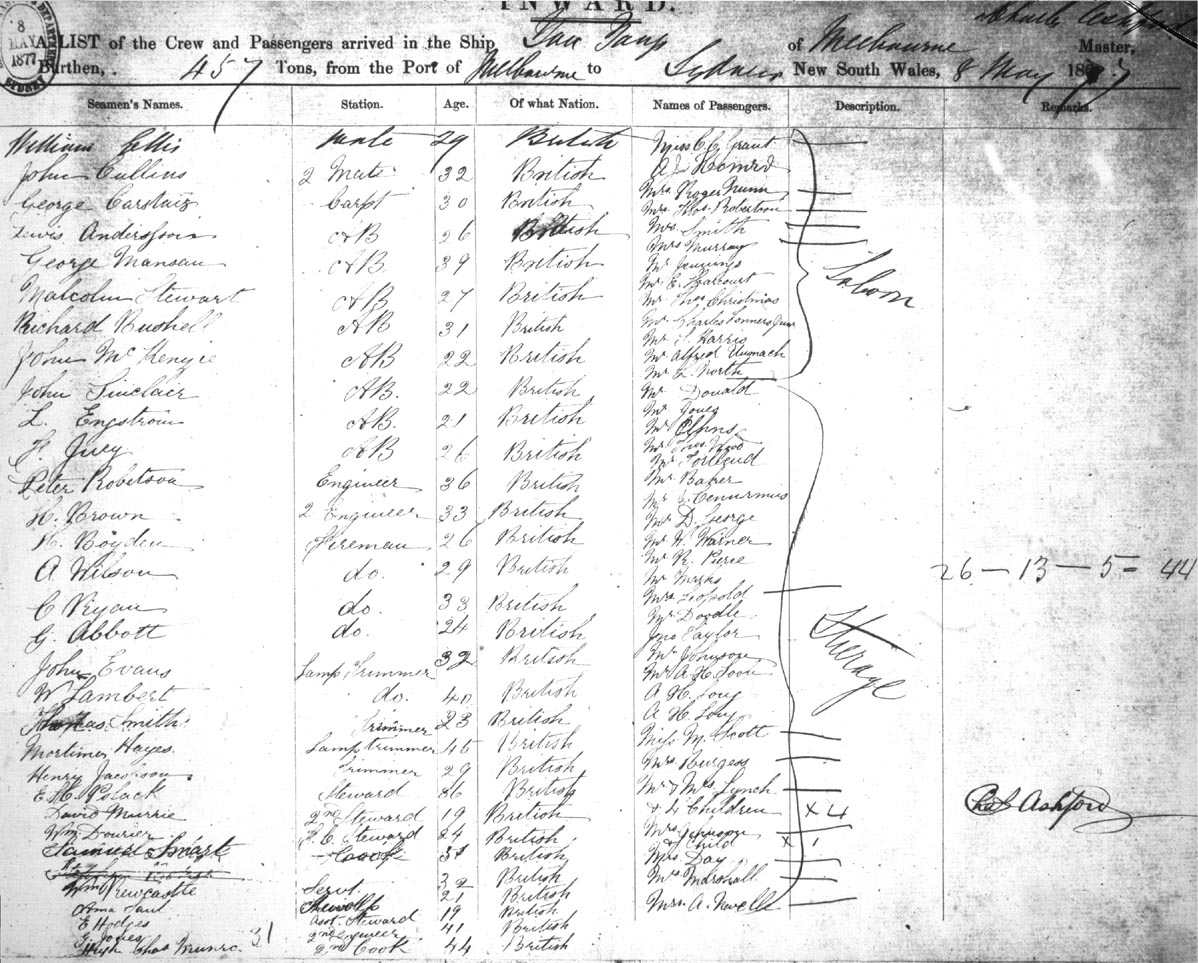 INWARD.
8 MAY 1877
SYDNEY
A LIST of the Crew and Passengers arrived in the Ship, of Melbourne Charles Ashford Master,
Burthen, 457 Tons, from the Port of Melbourne to Sydney New South Wales, 8 May 1877
Seamen's Names. Station. Age. Of what Nation. Names of Passengers. Description. Remarks.
William Ellis Mate 29 British Miss C. C. Grant
John Cullins 2 Mate 32 British
George Carstaiz Carpt 30 British Mrs Roger Nunn
Mrs Thos. Robertson
Lewis Anderssoin AB 26 British Mrs Smith
Mrs Murray
George Mansau AB 39 British Mr Jennings
Mr E. Harcourt
Saloon
Malcolm Stewart AB 27 British Mr Thos Christmas
Richard Bushell AB 31 British Mr Charles
Mr S. Harris
John McKenzie AB 22 British Mr Alfred
Mr L. North
John Sinclair AB. 22 British Mr Donald
Mr Jones
L. Engstrom AB. 21 British Mr
Mr Thos. Wood
F. Juey AB 26 British Mr
Peter Robetson Engineer 36 British Mr Baker
Mr J.
H. Brown 2 Engineer 33 British Mr D. George
R. Boyden Fireman 26 British Mr W. Warner
Mr R. Pierce
A Wilson do. 29 British Mr Marks
26 — 13 — 5 = 44
C Ryan do. 33 British Mrs Leopold
Mr Doodle
G. Abbott do. 24 British Jno Taylor
Steerage
John Evans Lamp Trimmer 32 British Mr Johnson
Mr A. H.
W Lambert do. 40 British A H. Long
Thomas Smith Trimmer 23 British A H. Long
Mortimer Hayes Lamp trimmer 46 British Miss M. Scott
Henry Jacobson Trimmer 29 British Mrs Burgess
E. M. Polack Steward 36 British Mr & Mrs Lynch
David Murrie 2nd Steward 19 British & 4 Children × 4
Chas Ashford
Wm Dourier F. C. Steward 24 British Mrs Johnson
& Child × 1
Samuel Smart Cook 31 British Mrs Day
Wm Newcastle Servt. 32 British Mrs Marshall
Anna Paul Stewdss 21 British Mrs A. Newell
E Hodges Asst. Steward 19 British
J. Jones 2nd Engineer 41 British
Hugh Chas Munro 31 2nd Cook 44 British